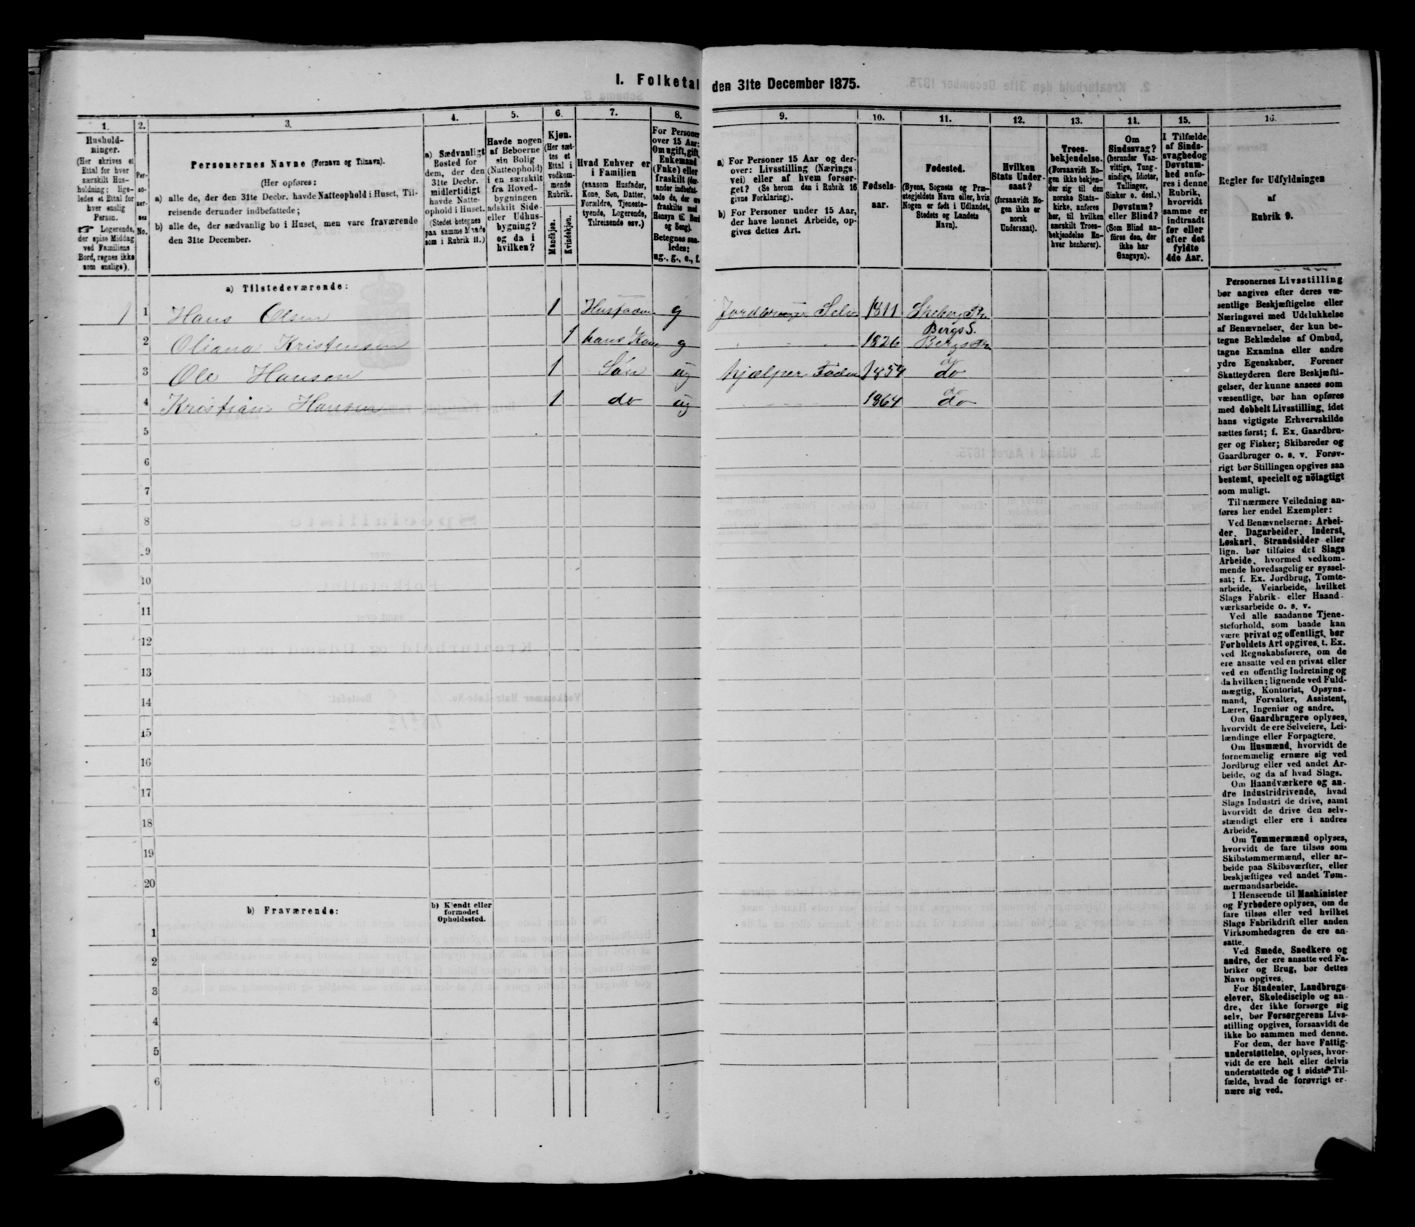 I. Folketal den 31te December 1875.
1.
Hushold-
ninger.
(Her skrives et
Ettal for hver
særskilt Hus-
holdning; lige-
ledes et Ettal for
hver enslig
Person.
☞ Logerende,
der spise Middag
ved Familiens
Bord, regnes ikke
som enslige).
2.
Per-
so-
ner-
nes
No.
3.
Personernes Navne (Fornavn og Tilnavn).
(Her opføres:
a) alle de, der den 31te Decbr. havde Natteophold i Huset, Til-
reisende derunder indbefattede;
b) alle de, der sædvanlig bo i Huset, men vare fraværende
den 31te December.
4.
a) Sædvanligt
Bosted for
dem, der den
31te Decbr.
midlertidigt
havde Natte-
ophold i Huset.
(Stedet betegnes
paa samme Maade
som i Rubrik 11.)
5.
Havde nogen
af Beboerne
sin Bolig
(Natteophold)
i en særskilt
fra Hoved-
bygningen
adskilt Side-
eller Udhus-
bygning?
og da i
hvilken?
6.
Kjøn.
(Her sæt-
tes et
Ettal i
vedkom-
mende
Rubrik.
Mandkjøn.
Kvindekjøn.
7.
Hvad Enhver er
i Familien
(saasom Husfader,
Kone, Søn, Datter,
Forældre, Tjeneste-
tyende, Logerende,
Tilreisende osv.)
8.
For Personer
over 15 Aar:
Om ugift, gift,
Enkemand
(Enke) eller
fraskilt (der-
under indbefat-
tede de, der ere
fraskilte med
Hensyn til Bord
og Seng).
Betegnes saa-
ledes:
ug., g., e., f.
9.
a) For Personer 15 Aar og der-
over: Livsstilling (Nærings-
vei) eller af hvem forsør-
get? (Se herom den i Rubrik 16
givne Forklaring).
b) For Personer under 15 Aar,
der have lønnet Arbeide, op-
gives dettes Art.
10.
Fødsels-
aar.
11.
Fødested.
(Byens, Sognets og Præ-
stegjeldets Navn eller, hvis
Nogen er født i Udlandet,
Stedets og Landets
Navn).
12.
Hvilken
Stats Under-
saat?
(forsaavidt No-
gen ikke er
norsk
Undersaat).
13.
Troes-
bekjendelse.
(Forsaavidt No-
gen ikke bekjen-
der sig til den
norske Stats-
kirke, anføres
her, til hvilken
særskilt Troes-
bekjendelse En-
hver henhører).
14.
Om
Sindssvag?
(herunder Van-
vittige, Tung-
sindige, Idioter,
Tullinger,
Sinker o. desl.)
Døvstum?
eller Blind?
(Som Blind an-
føres den, der
ikke har
Gangsyn).
15.
I Tilfælde
af Sinds-
svaghed og
Døvstum-
hed anfø-
res i denne
Rubrik,
hvorvidt
samme er
indtraadt
før eller
efter det
fyldte
4de Aar.
16.
Regler for Udfyldningen
af
Rubrik 9.
a) Tilstedeværende:
1 1 Hans Olsen 1 Husfader g Jordbruger Selv 1811 Pr
2 Oliana Kristensen 1 hans Kone g 1826 Bergs S. Bergs Pr
3 Ole Hansen 1 Søn ug hjælper Faderen 1859 do do
4 Kristian Hansen 1 do ug 1864 do do
5
6
7
8
9
10
11
12
13
14
15
16
17
18
19
20
b) Fraværende:
b) Kjendt eller
formodet
Opholdssted.
1
2
3
4
5
6
Personernes Livsstilling
bør angives efter deres væ-
sentlige Beskjæftigelse eller
Næringsvei med Udelukkelse
af Benævnelser, der kun be-
tegne Beklædelse af Ombud,
tagne Examina eller andre
ydre Egenskaber. Forener
Skatteyderen flere Beskjæfti-
gelser, der kunne ansees som
væsentlige, bør han opføres
med dobbelt Livsstilling, idet
hans vigtigste Erhvervskilde
sættes først; f. Ex. Gaardbru-
ger og Fisker; Skibsreder og
Gaardbruger o. s. v. Forøv-
rigt bør Stillingen opgives saa
bestemt, specielt og nøiagtigt
som muligt.
Til nærmere Veiledning an-
føres her endel Exempler:
Ved Benævnelserne: Arbei-
der, Dagarbeider, Inderst,
Løskarl, Strandsidder eller
lign. bør tilføies det Slags
Arbeide, hvormed vedkom-
mende hovedsagelig er syssel-
sat; f. Ex. Jordbrug, Tomte-
arbeide, Veiarbeide, hvilket
Slags Fabrik- eller Haand-
værksarbeide o. s. v.
Ved alle saadanne Tjene-
steforhold, som baade kan
være privat og offentligt, bør
Forholdets Art opgives, t. Ex.
ved Regnskabsførere, om de
ere ansatte ved en privat eller
ved en offentlig Indretning og
da hvilken; lignende ved Fuld-
mægtig, Kontorist, Opsyns-
mand, Forvalter, Assistent,
Lærer, Ingeniør og andre.
Om Gaardbrugere oplyses,
hvorvidt de ere Selveiere, Lei-
lændinge eller Forpagtere.
Om Husmænd, hvorvidt de
fornemmelig ernære sig ved
Jordbrug eller ved andet Ar-
beide, og da af hvad Slags.
Om Haandværkere og an-
dre Industridrivende, hvad
Slags Industri de drive, samt
hvorvidt de drive den selv-
stændigt eller ere i andres
Arbeide.
Om Tømmermænd oplyses,
hvorvidt de fare tilsøs som
Skibstømmermænd, eller ar-
beide paa Skibsværfter, eller
beskjæftiges ved andet Tøm-
mermandsarbeide.
I Henseende til Maskinister
og Fyrbødere oplyses, om de
fare tilsøs eller ved hvilket
Slags Fabrikdrift eller anden
Virksomhedsgren de ere an-
satte.
Ved Smede, Snedkere og
andre, der ere ansatte ved Fa-
briker og Brug, bør dettes
Navn opgives.
For Studenter, Landbrugs-
elever, Skoledisciple og an-
dre, der ikke forsørge sig
selv, bør Forsørgerens Livs-
stilling opgives, forsaavidt de
ikke bo sammen med denne.
For dem, der have Fattig-
understøttelse, oplyses, hvor-
vidt de ere helt eller delvis
understøttede og i sidste Til-
fælde, hvad de forøvrigt er-
nære sig ved.